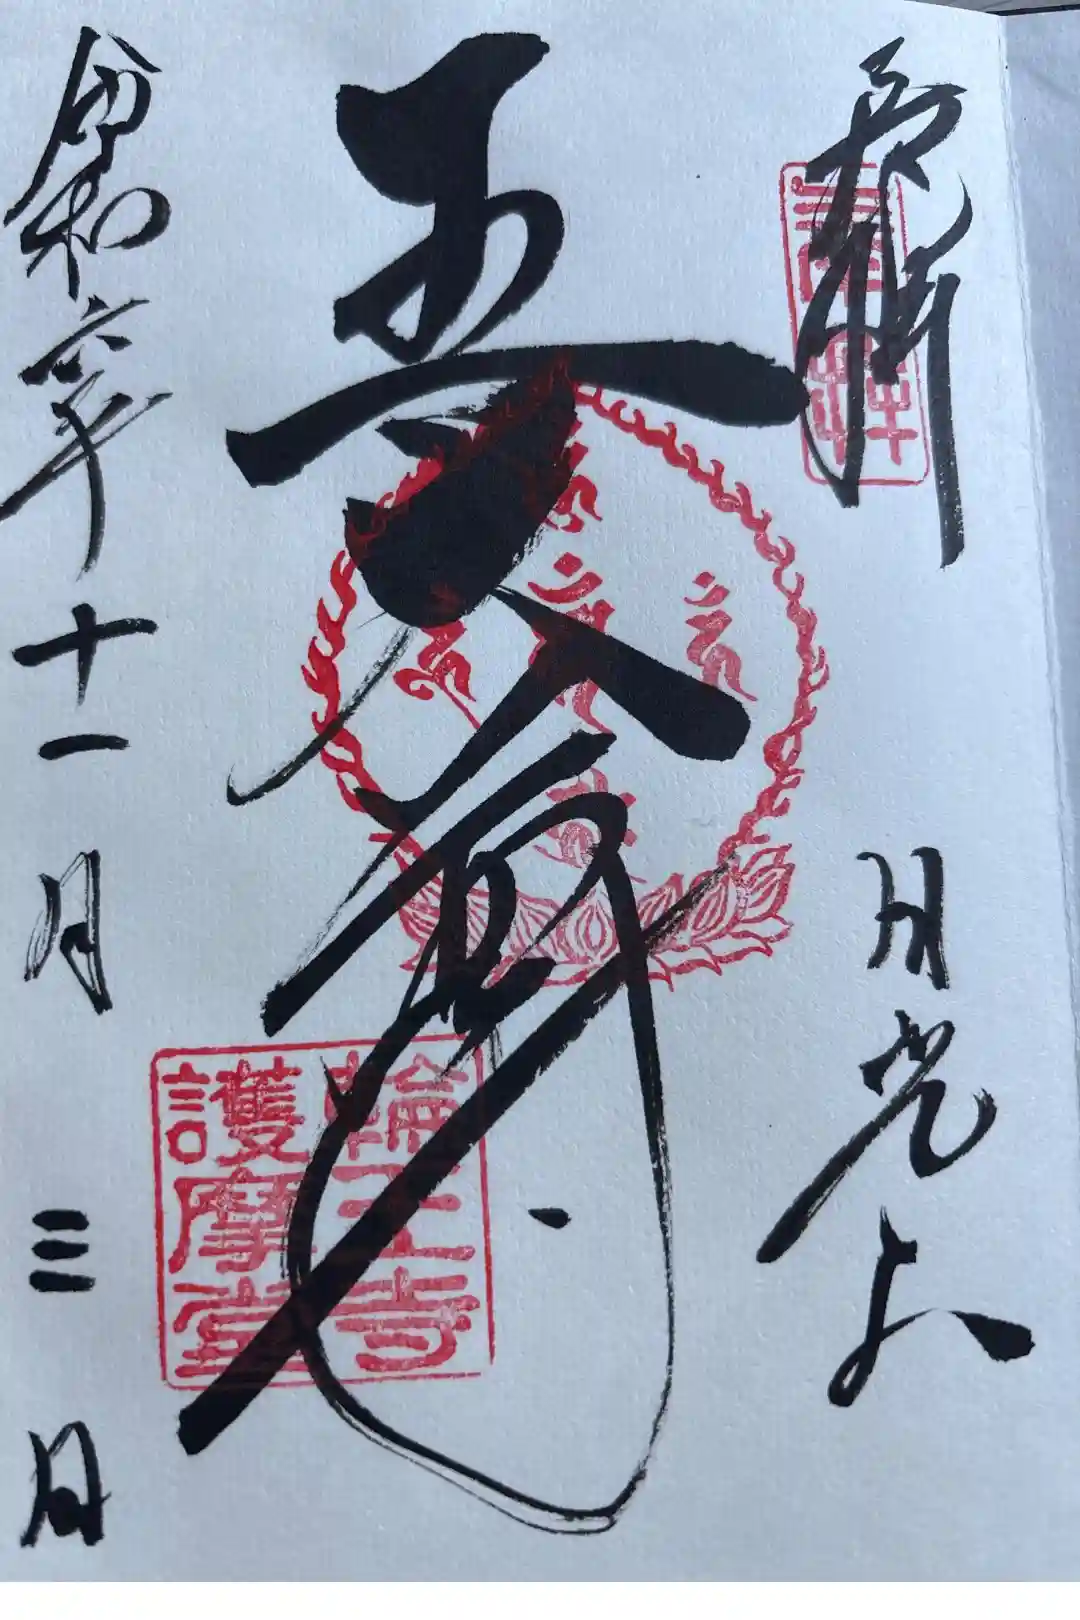 奉拝
日光山
五大尊
輪王寺
護摩堂
令和六年十一月三日